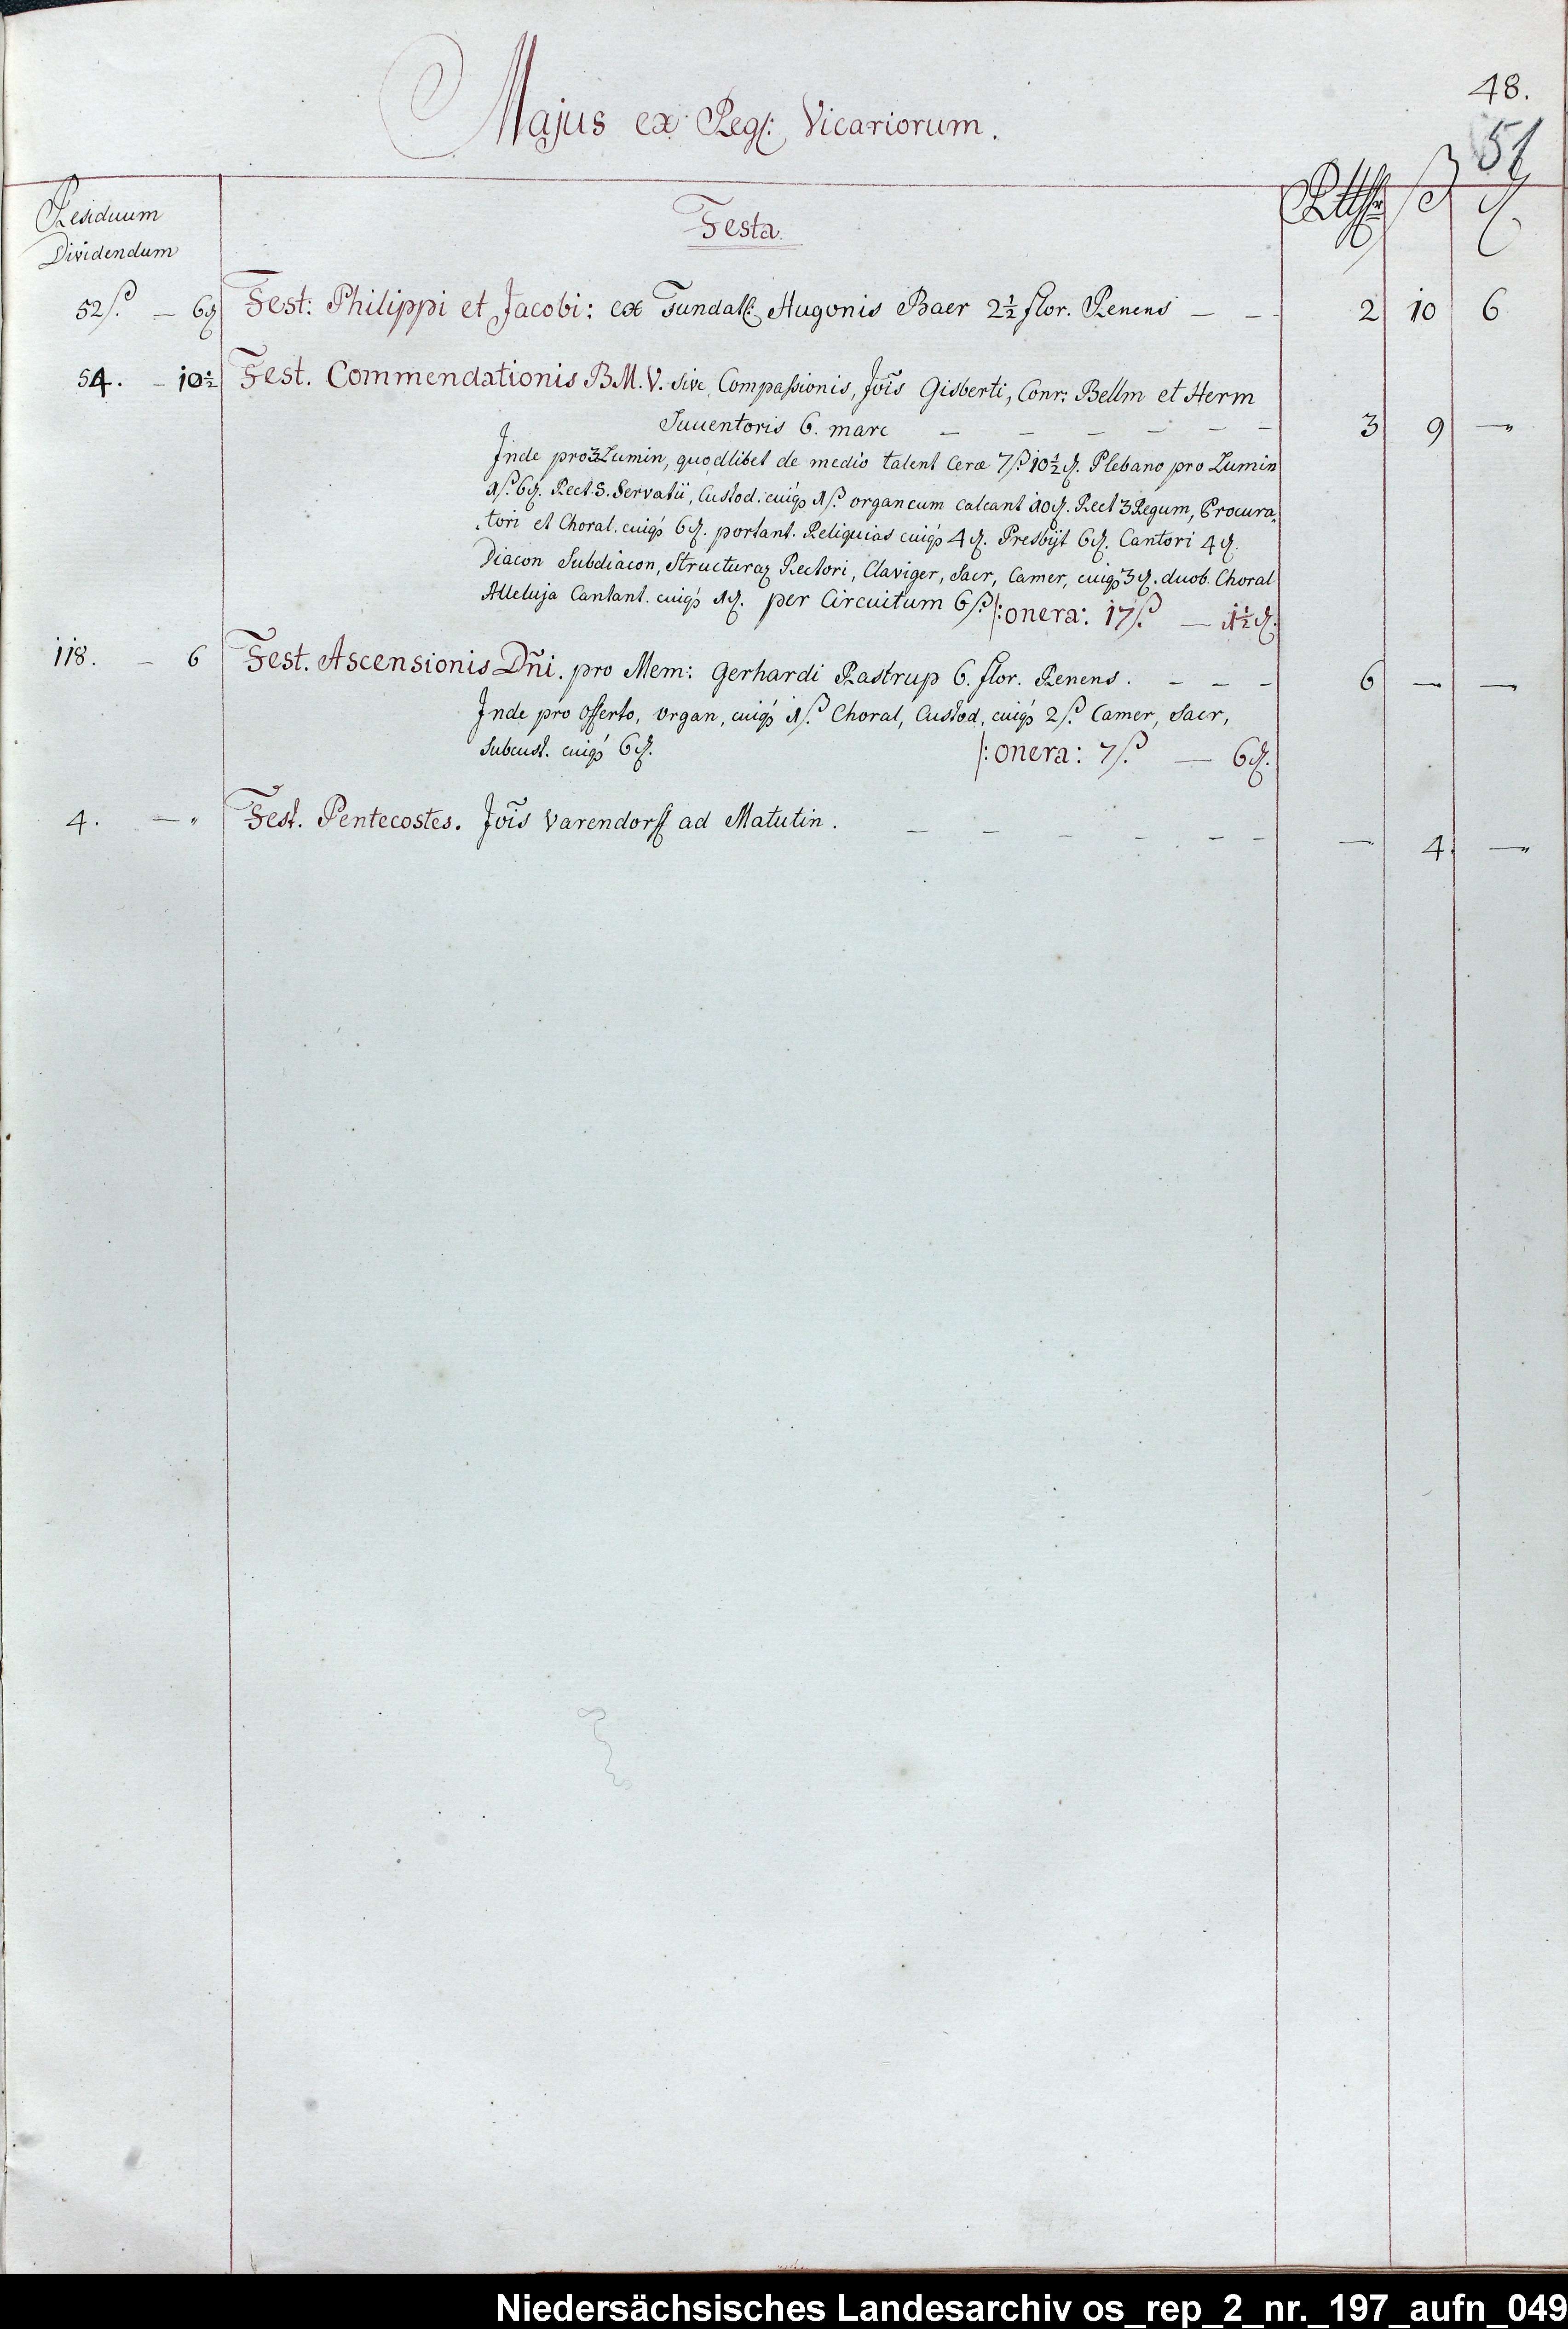 48.
51
Majus ex Reg: Vicariorum.
Residuum
Dividendum
Festa
Rthlr ß ₰
52ß. — 6₰ Fest: Philippi et Jacobi: ex Fundat: Hugonis Baer 2½ flor. Renens — — 2 10 6
54. — 10½ Fest. Commendationis B.M.V. sive Compassionis, Jois Gisberti, Conr: Bellm et Herm
Juventoris 6. marc — — — — — 3 9 —
Inde pro 3 Lumin, quodlibet de medio talent Ceræ 7ß 10½₰. Plebano pro Lumin
1ß. 6₰. Rect. S. Servatii, Custod. cuiq 1ß. organ cum calcant 10₰. Rect 3 Regum, Procura„
„tori et Choral. cuiq 6₰. portant. Reliquias cuiq 4₰. Presbijt 6₰. Cantori 4₰.
Diacon Subdiacon, Structuraz Rectori, Claviger, Sacr, Camer, cuiq 3₰. duob. Choral
Alleluja Cantant. cuiq 1₰. per Circuitum 6ß. /: onera: 17ß. — 1½₰.
118. — 6 Fest. Ascensionis Dñi. pro Mem: Gerhardi Rastrup 6. flor. Renens. — — — 6 — —
Inde pro Offerto, organ, cuiq 1ß. Choral, Custod, cuiq 2ß. Camer, Sacr,
Subcust. cuiq 6₰. /: onera: 7ß. — 6₰.
4. — „ Fest. Pentecostes. Jois Varendorff ad Matutin. — — — — — — — 4. —
Niedersächsisches Landesarchiv os_rep_2_nr._197_aufn_049